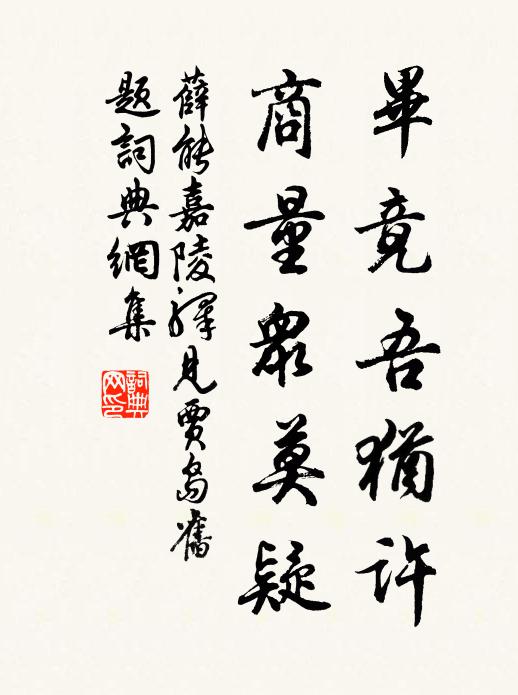 畢竟吾猶許
商量眾莫疑
薛能嘉陵驛見賈島舊
題詞典網集
詞典
网印